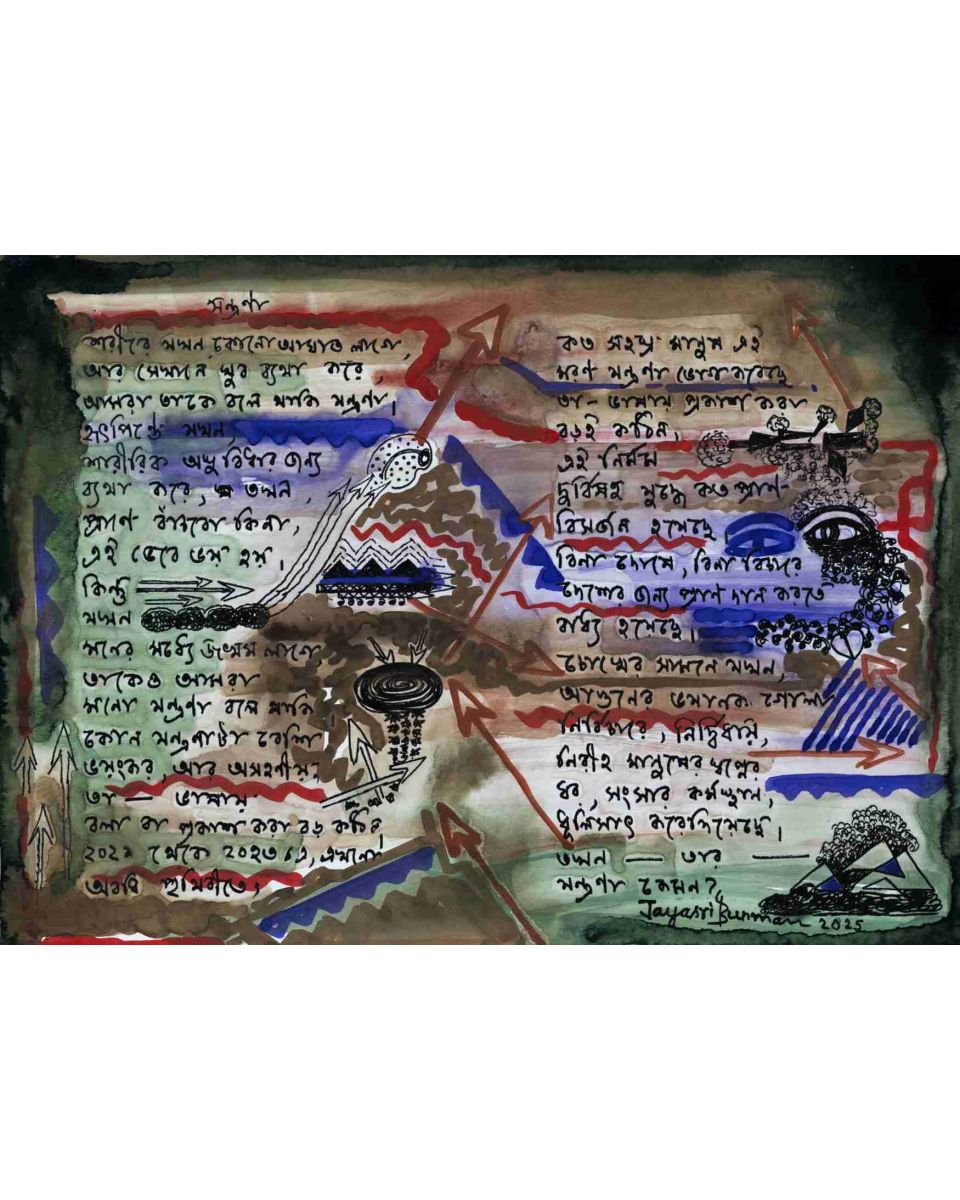 যন্ত্রণা
শরীরে যখন কোনো আঘাত লাগে,
আর সেখানে খুব ব্যথা করে,
আমরা তাকে বলে থাকি যন্ত্রণা,
হৃৎপিণ্ডে যখন,
শারীরিক অসুবিধার জন্য
ব্যথা করে, তখন,
প্রাণে বাঁচবো কিনা,
এই ভেবে ভয় হয়,
কিন্তু
যখন
মনের মধ্যে জখম লাগে,
তাকেও আমরা
মনো যন্ত্রণা বলে থাকি
কোন যন্ত্রণাটা বেশি
ভয়ংকর, আর অসহনীয়?
তা — ভাষায়
বলা বা প্রকাশ করা বড় কঠিন,
থেকে এ, এখনো
অবধি পৃথিবীতে,
কত সহস্র মানুষ এই
মরণ যন্ত্রণা ভোগ করেছে
তা - ভাষায় প্রকাশ করা
বড়ই কঠিন,
এই নির্মম
দুর্বিসহ যুদ্ধে কত প্রাণ
বিসর্জন হয়েছে
বিনা দোষে, বিনা বিচারে
দেশের জন্য প্রাণ দান করতে
বাধ্য হয়েছে।
চোখের সামনে যখন,
আগুনের ভয়ানক গোলা
নির্বিচারে, নির্দ্বিধায়,
নিরীহ মানুষের স্বপ্নের
ঘর, সংসার কর্মস্থান,
ধূলিসাৎ করেদিয়েছে,
তখন — তার —
যন্ত্রণা কেমন?
Jayasri Burman 2025